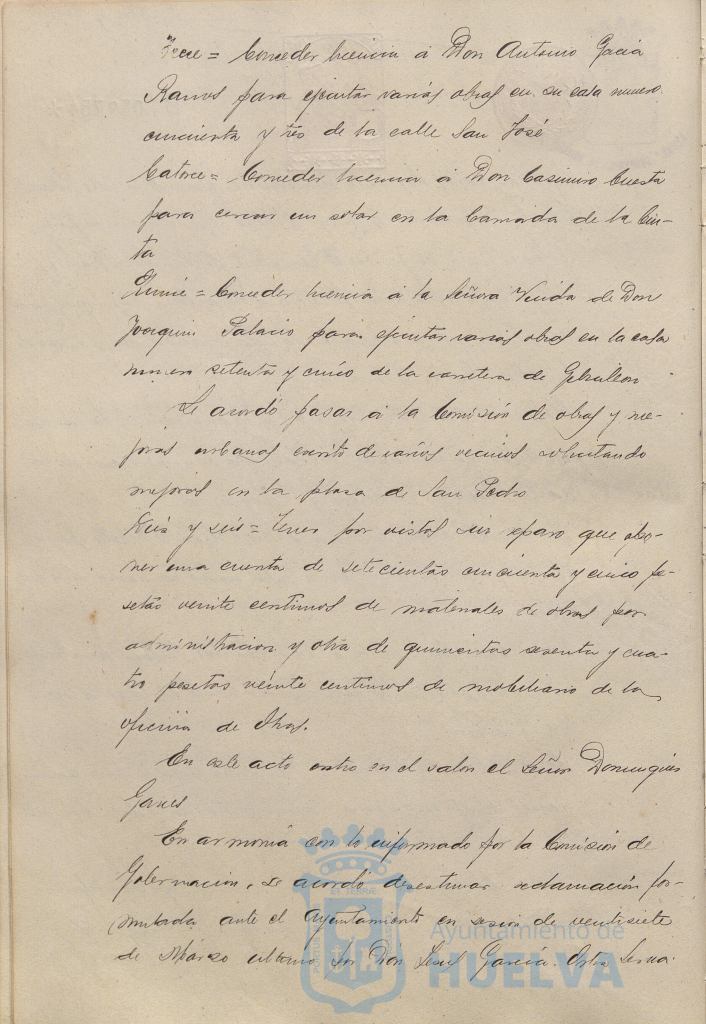 Trece = Conceder licencia á Don Antonio Garcia
Ramos para ejecutar varias obras en su casa numero
cincuenta y tres de la calle San José
Catorce = Conceder licencia á Don Casimiro Cuesta
para cercar un solar en la Barriada de la Cin-
ta
Quince = Conceder licencia á la Señora Viuda de Don
Joaquin Palacio para ejecutar varias obras en la casa
numero setenta y cinco de la carretera de Gibraleon
Se acordó pasar á la Comisión de obras y me-
joras urbanas escrito de varios vecinos solicitando
mejoras en la plaza de San Pedro
Diez y seis = Tener por vistas sin reparo que opo-
ner una cuenta de setecientas cincuenta y cinco pe-
setas veinte centimos de materiales de obras por
administracion y otra de quinientas sesenta y cua-
tro pesetas veinte centimos de mobiliario de la
oficina de Obras.
En este acto entro en el salon el Señor Dominguez
Garces
En armonia con lo informado por la Comisión de
Gobernacion, se acordó desestimar reclamación for-
mulada ante el Ayuntamiento en sesion de veintisiete
de Marzo ultimo por Don José García
Ayuntamiento de
HUELVA